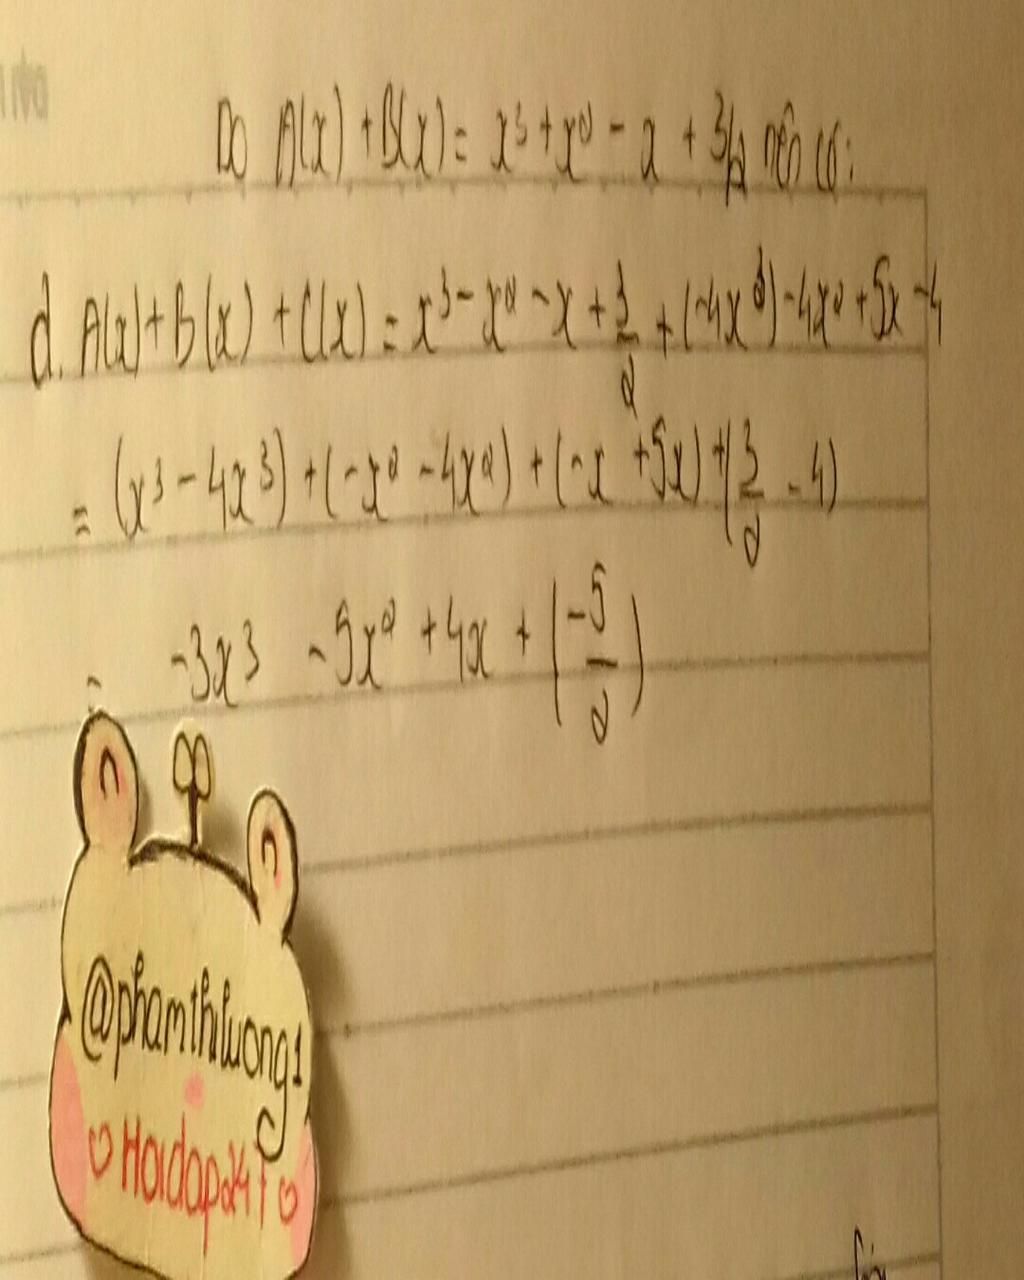 Do A(x) + B(x) = x³ + x² - x + 3/2 nên có:
d. A(x) + B(x) + C(x) = x³ - x² - x + 3/2 + (-4x³) - 4x² + 5x - 4
= (x³ - 4x³) + (-x² - 4x²) + (-x + 5x) + (3/2 - 4)
= -3x³ - 5x² + 4x + (-5/2)
@phamthiluong1
♡ Hoidap247 ♡